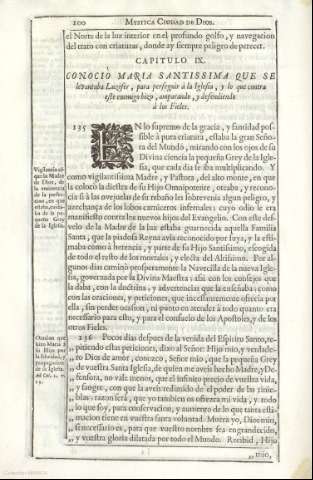 200 MYSTICA CIUDAD DE DIOS.
el Norte de la luz interior en el profundo golfo, y navegacion
del trato con criaturas, donde ay siempre peligro de perecer.
CAPITULO IX.
CONOCIÒ MARIA SANTISSIMA QUE SE
levantaba Luzifer, para perseguir à la Iglesia, y lo que contra
este enemigo hizo, amparando, y defendiendo
à los Fieles.
135 EN lo supremo de la gracia, y santidad pos-
sible à pura criatura, estaba la gran Seño-
ra del Mundo, mirando con los ojos de su
Divina ciencia la pequeña Grey de la Igle-
sia, que cada dia se iba multiplicando. Y
como vigilantissima Madre, y Pastora, del alto monte, en que
la colocò la diestra de su Hijo Omnipotente, oteaba, y recono-
cia si à las ovejuelas de su rebaño les sobrevenia algun peligro, y
assechança de los lobos carniceros infernales; cuyo odio le era
manifiesto contra los nuevos hijos del Evangelio. Con este des-
velo de la Madre de la luz estaba guarnecida aquella Familia
Santa, que la piadosa Reyna avia reconocido por suya, y la esti-
maba como à herencia, y parte de su Hijo Santissimo, escogida
de todo el resto de los mortales, y electa del Altissimo. Por al-
gunos dias caminò prosperamente la Navecilla de la nueva Igle-
sia, governada por la Divina Maestra; assi con los consejos que
la daba, con la doctrina, y advertencias que la enseñaba; como
con las oraciones, y peticiones, que incessantemente ofrecia por
ella, sin perder ocasion, ni punto en atender à todo quanto era
necessario para esto, y para el consuelo de los Apostoles, y de los
otros Fieles.
Vigilancia cõ
que la Madre
de Dios, de
la eminencia
de su perfec-
cion, en que
estaba, cuida-
ba de la pe-
queña Grey
de la Iglesia.
136 Pocos dias despues de la venida del Espiritu Santo, re-
,, pitiendo estas peticiones, dixo al Señor: Hijo mio, y verdade-
,, ro Dios de amor, conozco, Señor mio, que la pequeña Grey
,, de vuestra Santa Iglesia, de quien me aveis hecho Madre, y De-
,, fensora, no vale menos, que el infinito precio de vuestra vida,
,, y sangre, con que la aveis redimido de el poder de las tinie-
,, blas: razon serà, que yo tambien os ofrezca mi vida, y todo
,, lo que soy, para conservacion, y aumento de lo que tanta esti-
,, macion tiene en vuestra santa voluntad. Muera yo, Dios mio,
,, si necessario es, para que vuestro nombre sea engrandecido,
,, y vuestra gloria dilatada por todo el Mundo. Recibid, Hijo
Oracion que
hizo Maria à
su Hijo por
la

,, mio,